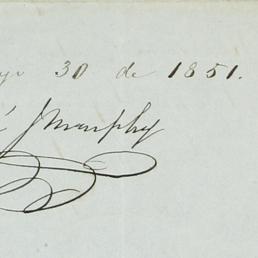 yo 30 de 1851.
é J Murphy